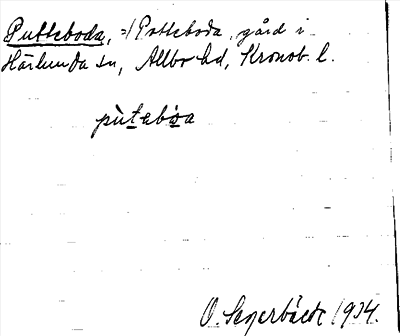 Putteboda, =/ Potteboda, gård i
Härlunda sn, Allbo hd, Kronob. l.
pùtebòa
O. Segerbäck 1934.